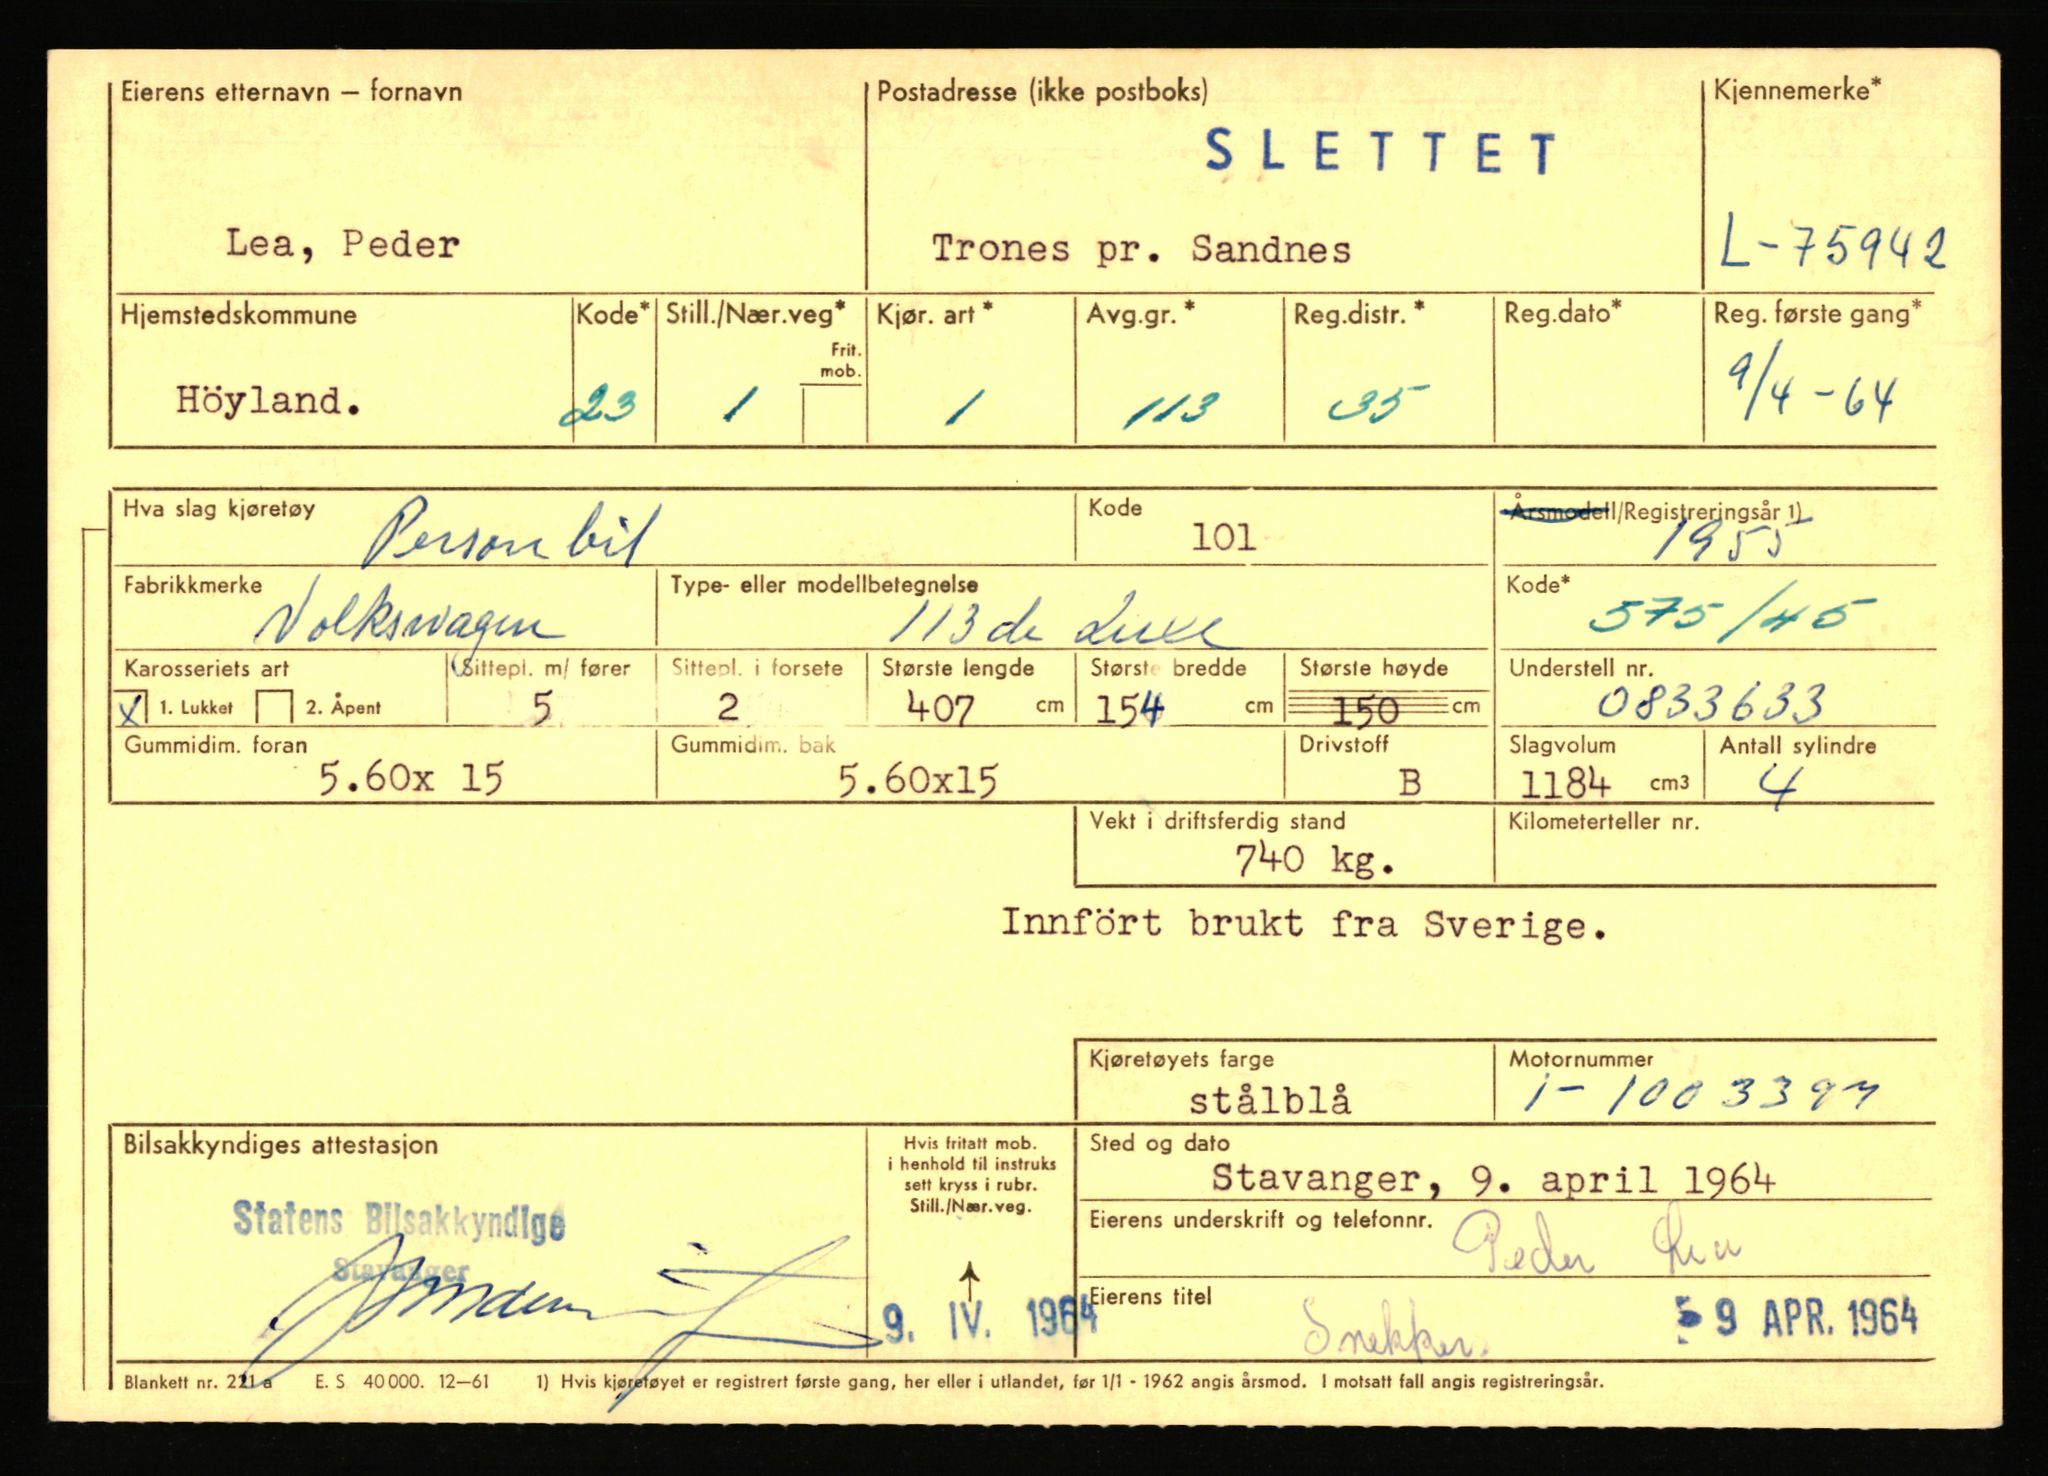 Eierens etternavn – fornavn Postadresse (ikke postboks) Kjennemerke*
SLETTET
Lea, Peder Trones pr. Sandnes L-75942
Hjemstedskommune Kode* Still./Nær.veg* Kjør. art* Avg.gr.* Reg.distr.* Reg.dato* Reg. første gang*
Frit. mob.
Höyland. 23 1 1 113 35 9/4-64
Hva slag kjøretøy Kode Årsmodell/Registreringsår 1)
Personbil 101 1955
Fabrikkmerke Type- eller modellbetegnelse Kode*
Volkswagen 113 de Luxe 575/45
Karosseriets art Sittepl. m/ fører Sittepl. i forsete Største lengde Største bredde Største høyde Understell nr.
X 1. Lukket 2. Åpent 5 2 407 cm 154 cm 150 cm 0833633
Gummidim. foran Gummidim. bak Drivstoff Slagvolum Antall sylindre
5.60x 15 5.60x15 B 1184 cm3 4
Vekt i driftsferdig stand Kilometerteller nr.
740 kg.
Innfört brukt fra Sverige.
Kjøretøyets farge Motornummer
stålblå 1-1003397
Bilsakkyndiges attestasjon Hvis fritatt mob. Sted og dato
i henhold til instruks
sett kryss i rubr.
Still./Nær.veg.
Stavanger, 9. april 1964
Statens Bilsakkyndige
Stavanger
Eierens underskrift og telefonnr.
Peder Lea
9. IV. 1964
Eierens titel
Snekker. 9 APR. 1964
Blankett nr. 221 a E. S 40 000. 12–61 1) Hvis kjøretøyet er registrert første gang, her eller i utlandet, før 1/1 - 1962 angis årsmod. I motsatt fall angis registreringsår.